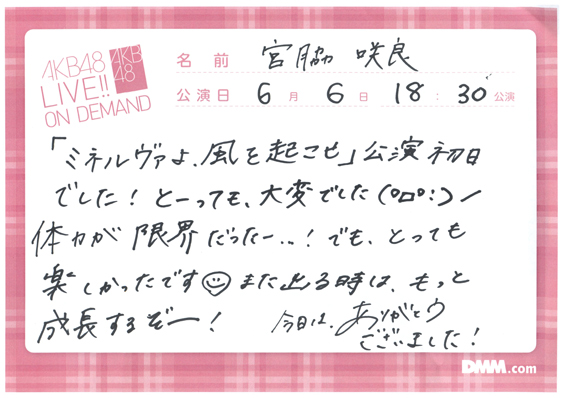 AKB48
LIVE!!
ON DEMAND
AKB
48
名前 宮脇 咲良
公演日 6月 6日 18:30 公演
「ミネルヴァよ、風を起こせ」公演初日
でした！とーっても、大変でした(°ロ°:)ノ
体力が限界だったー..！でも、とっても
楽しかったです☺また出る時は、もっと
成長するぞー！
今日は、ありがとう
ございました！
DMM.com